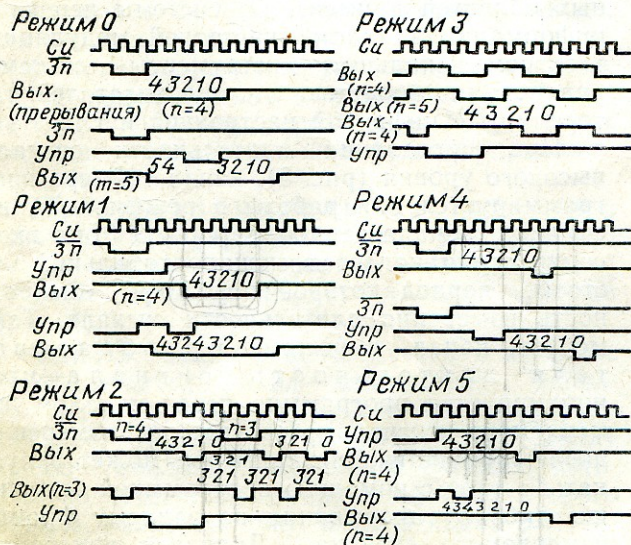 Режим 0
Си
Зп
43210
Вых.
(прерывания) (n=4)
Зп
Упр
54 3210
Вых (m=5)
Режим 1
Си
Зп
Упр
43210
Вых
(n=4)
Упр
43243210
Вых
Режим 2
Си
Зп n=4 n=3
43210 3210
Вых
321
321 321 321
Вых(n=3)
Упр
Режим 3
Си
Вых
(n=4)
Вых (n=5) 43210
Вых
(n=4)
Упр
Режим 4
Си
Зп
43210
Вых
Зп
Упр
43210
Вых
Режим 5
Си
Упр
43210
Вых
(n=4)
Упр
4343210
Вых
(n=4)